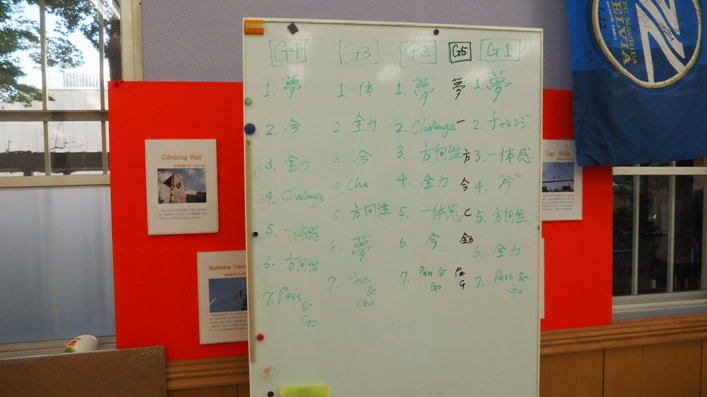 G4
1. 夢
2. 今
3. 全力
4. Challenge
5. 一体感
6. 方向性
7. Pass & Go
G3
1. 一体
2. 全力
3. 今
4. Cha
5. 方向性
6. 夢
7. Pass & Go
G2
1. 夢
2. Challenge
3. 方向性
4. 全力
5. 一体感
6. 今
7. Pass & Go
G5
夢
一
方
今
C
全力
Pa
G
G1
1. 夢
2. チャレンジ
3. 一体感
4. "今"
5. 方向性
6. 全力
7. Pass & Go
Climbing Wall
Cat Walk
ELVIA